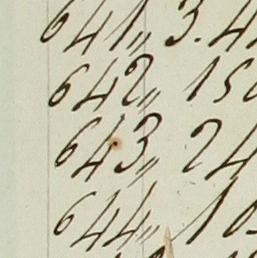 641„ 3.4
642„ 15
643„ 24
644„ 10